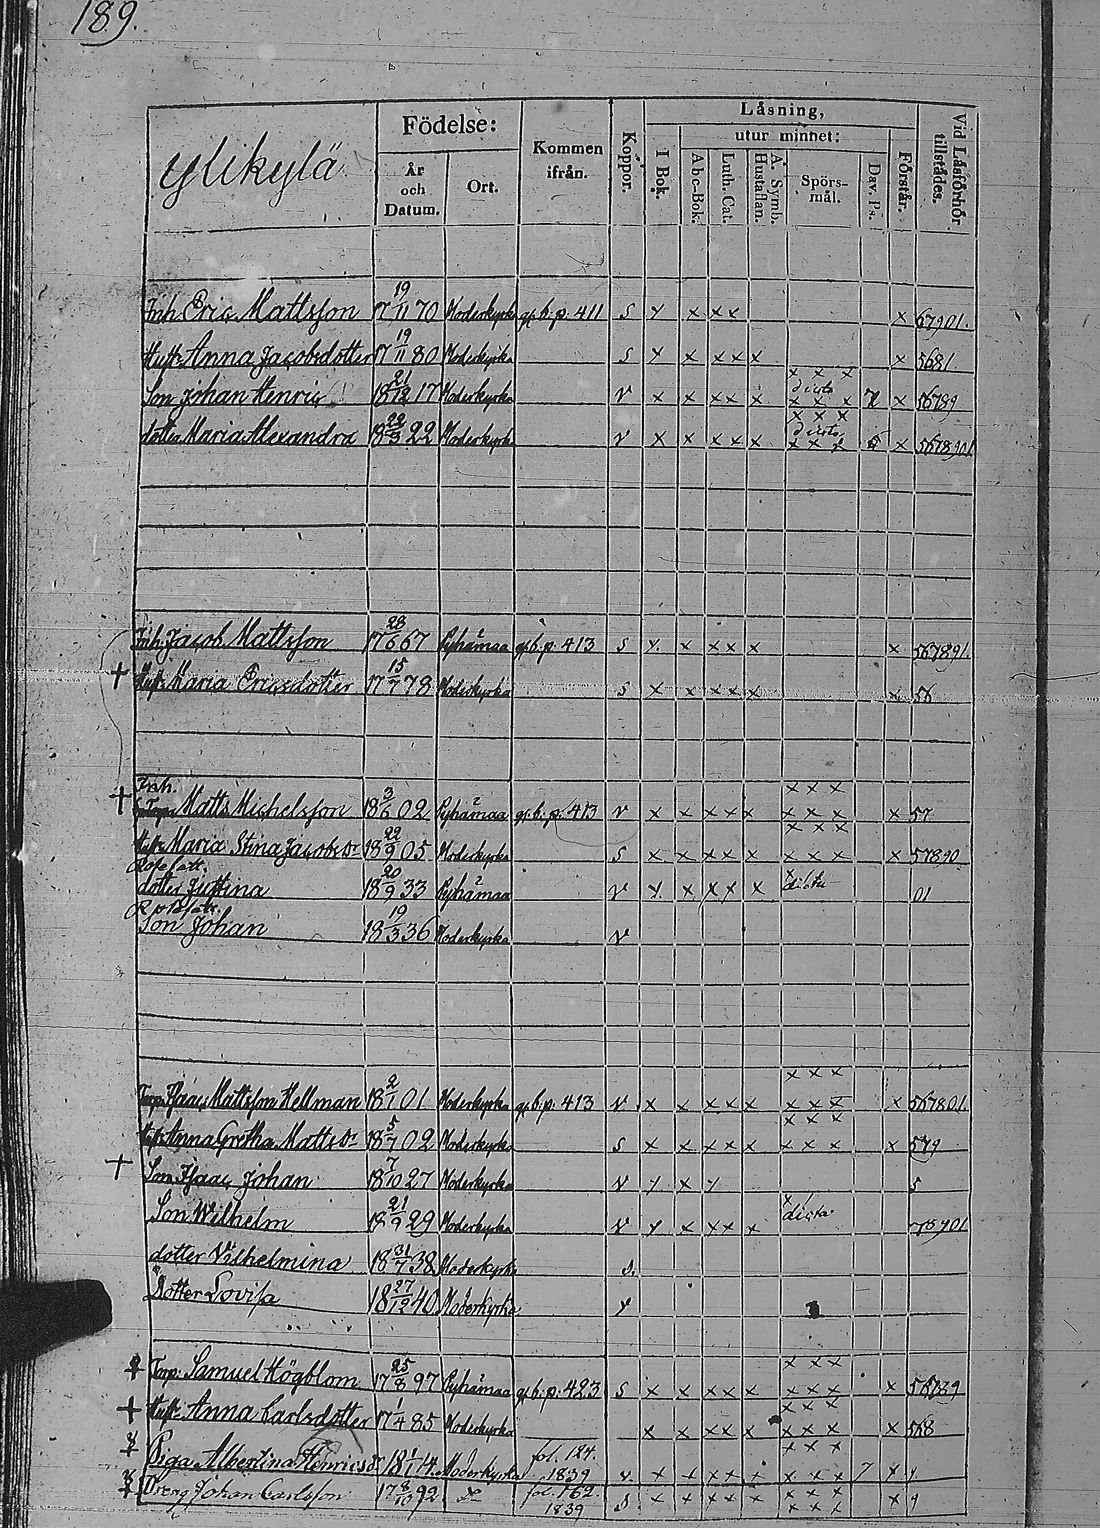 189.
Ylikylä
Födelse:
År
och
Datum.
Ort.
Kommen
ifrån.
Koppor.
Läsning,
I Bok.
utur minnet:
Abc-Bok.
Luth. Cat.
A. Symb.
Hustaflan.
Spörs-
mål.
Dav. Ps.
Förstår.
Vid Läsförhör
tillstädes.
Inh. Eric Mattsson 17 19/11 70 Moderkyrka gl. b. p. 411 S x x x x x 67901.
Hust. Anna Jacobsdotter 17 19/11 80 Moderkyrka S x x x x x x 5681.
Son Johan Henric 18 21/12 17 Moderkyrka V x x x x x x x x dicta x x x 7 x 56789
dotter Maria Alexandra 18 22/3 22 Moderkyrka V x x x x x x x x dicta x x x 5 x 5678901
Inh. Jacob Mattsson 17 28/6 67 Pyhämaa gl. b. p. 413 S x x x x x x x 567891.
† Hust. Maria Ericsdotter 17 15/7 78 Moderkyrka S x x x x x x x 56
† Inh.
Matts Michelsson 18 3/6 02 Pyhämaa gl. b. p. 413 V x x x x x x x x x x x x x 57
Hust. Maria Stina Jacobsdr 18 22/9 05 Moderkyrka S x x x x x x x x x x x x x 57890
dotter Justina 18 20/9 33 Pyhämaa V x x x x x x x dicta 01
Son Johan 18 19/3 36 Moderkyrka V
Torp. Isaac Mattsson Hellman 18 2/1 01 Moderkyrka gl. b. p. 413 V x x x x x x x x x x x x 567801
Hust. Anna Gretha Mattsdr 18 5/7 02 Moderkyrka S x x x x x x x x x x x x 579
† Son Isaac Johan 18 7/10 27 Moderkyrka V x x x 5
Son Wilhelm 18 21/9 29 Moderkyrka V x x x x x x dicta
dotter Vilhelmina 18 31/7 38 Moderkyrka S.
Dotter Lovisa 18 27/12 40 Moderkyrka
Torp. Samuel Högblom 17 25/8 97 Pyhämaa gl. b. p. 423 S x x x x x x x x x x x x
† Hust. Anna Carlsdotter 17 1/4 85 Moderkyrka x x x x x x x x x x x x 568
Piga Albertina Henricsdr 18 1/1 14 Moderkyrka fol. 184.
1839 v. x x x x x x x x x x x 7 x
Dreng Johan Carlsson 17 8/10 92 fol. 162
1839 S x x x x x x x x x x x x